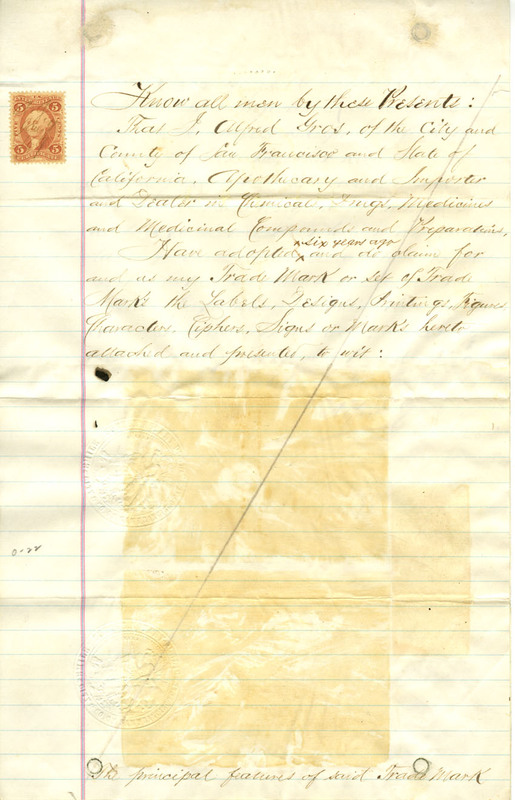 Know all men by these Presents:
That I, Alfred Gros, of the City and
County of San Francisco and State of
California, Apothecary and Importer
and Dealer in Chemicals, Drugs, Medicines
and Medicinal Compounds and Preparations,
six years ago
Have adopted and do claim for
and as my Trade Mark or Set of Trade
Marks the Labels, Designs, Printings, Figures
Characters, Ciphers, Signs or Marks hereto
attached and presented, to wit:
The principal features of said Trade Mark
5 5
5 5